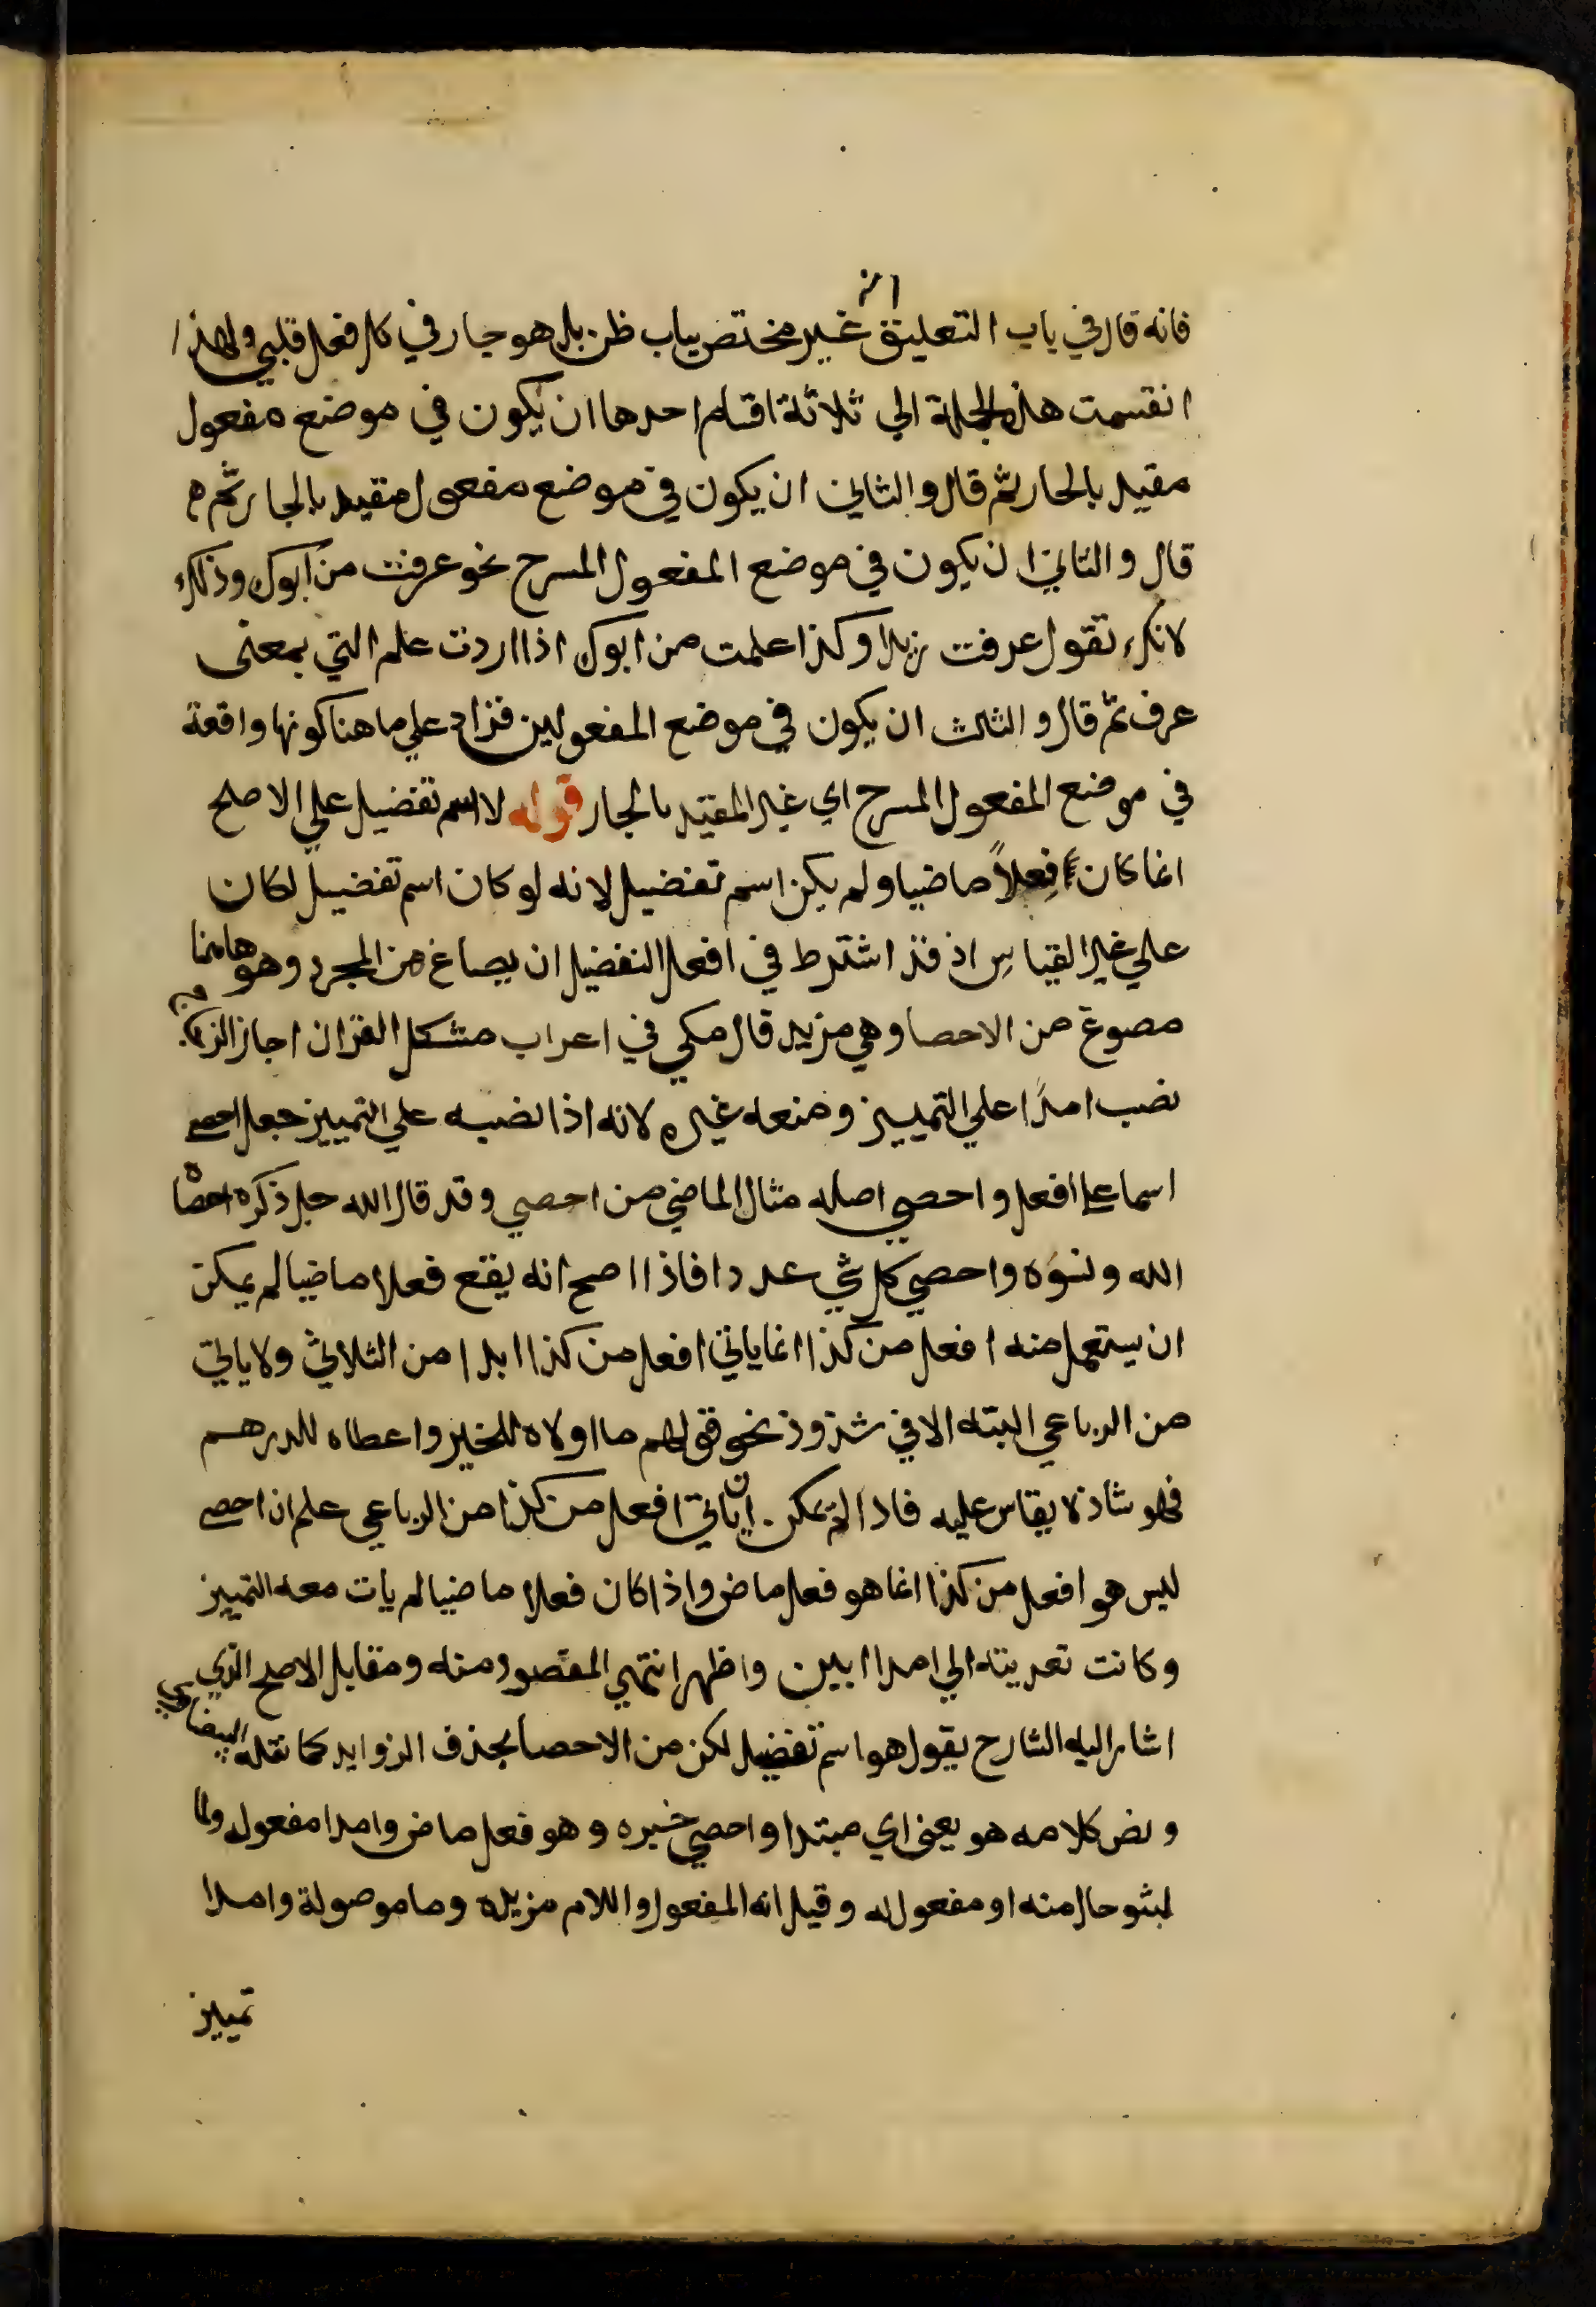 فانه قال في باب التعليق انه غير مختص بباب ظن بل هو جار في كل فعل قلبي ولهذا
انقسمت هذه الجملة الي ثلاثة اقسام احدها ان يكون في موضع مفعول
مقيد بالجار ثم قال والثاني ان يكون في موضع مفعول مقيد بالجار ثم
قال والثاني ان يكون في موضع المفعول المسرح نحو عرفت من ابوك وذلك
لانك تقول عرفت زيدا وكذا علمت من ابوك اذا اردت علم التي بمعنى
عرف ثم قال والثالث ان يكون في موضع المفعولين فزاد علي ما هنا كونها واقعة
في موضع المفعول المسرح اي غير المقيد بالجار قوله لا اسم تفضيل علي الاصح
انما كان فِعلاً ماضيا ولم يكن اسم تفضيل لانه لو كان اسم تفضيل لكان
علي غير القياس اذ قد اشترط في افعل التفضيل ان يصاغ من المجرد وهو هاهنا
مصوغ من الاحصا وهي مزيد قال مكي في اعراب مشكل القران اجاز الزجاج
نصب امدًا علي التمييز ومنعه غيره لانه اذا نصبه علي التمييز جعل احصي
اسما علي افعل واحصي اصله مثال الماضي من احصي وقد قال الله جل ذكره احصاه
الله ونسوه واحصي كل شي عددا فاذا اصح انه يقع فعلا ماضيا لم يمكن
ان يستعمل منه افعل من كذا انما ياتي افعل من كذا ابدا من الثلاثي ولا ياتي
من الرباعي البته الا في شذوذ نحو قولهم ما اولاه للخير واعطاه للدرهم
فهو شاذ لا يقاس عليه فاذا لم يمكن ان ياتي افعل من كذا من الرباعي علم ان احصي
ليس هو افعل من كذا انما هو فعل ماض واذا كان فعلا ماضيا لم يات معه التمييز
وكانت تعديته الي امدا ابين واظهر انتهي المقصود منه ومقابل الاصح الذي
اشار اليه الشارح يقول هو اسم تفضيل لكن من الاحصا بحذف الزوايد كما نقله البيضاوي
ونص كلامه هو يعني اي مبتدا واحصي خبره وهو فعل ماض وامدا مفعوله ولما
لبثو حال منه او مفعول له وقيل انه المفعول واللام مزيده وما موصولة وامدا
تمييز